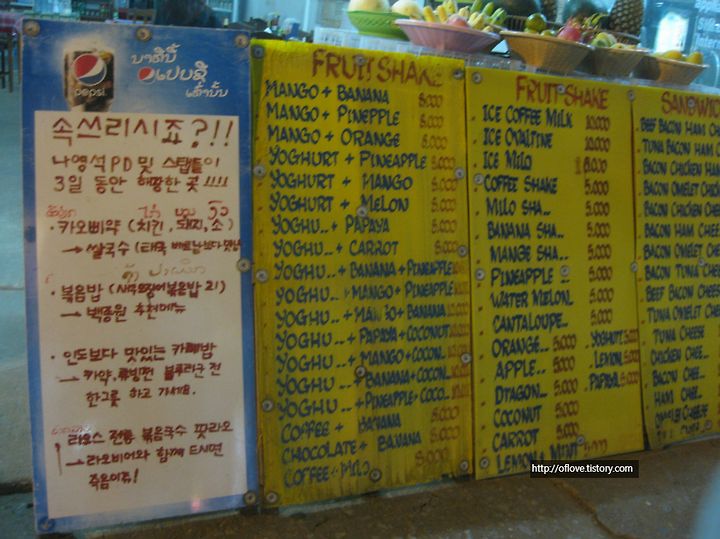 pepsi
ນາທີນີ້
ແປບຊີ
ເທົ່ານັ້ນ
속쓰리시죠?!!
나영석PD 및 스탭들이
3일 동안 해장한 곳!!!!
· 카오삐약 (치킨, 돼지, 소)
→ 쌀국수 (태국 베트남보다 맛남
· 볶음밥
→ 백종원 추천메뉴
· 인도보다 맛있는 카레밥
→ 카약, 튜빙전 블루라군 전
한그릇 하고 가세요.
라오스 전통 볶음국수 팟라오
→ 라오비어와 함께 드시면
죽음이쥬!
FRUIT SHAKE
MANGO + BANANA 8.000
MANGO + PINEPPLE 8.000
MANGO + ORANGE 8.000
YOGHURT + PINEAPPLE 8.000
YOGHURT + MANGO 8.000
YOGHURT + MELON 8.000
YOGHU.. + PAPAYA 8.000
YOGHU.. + CARROT 8.000
YOGHU... + BANANA + PINEAPPLE
YOGHU.. + MANGO + PINEAPPLE
YOGHU.. + MANGO + BANANA 10.000
YOGHU.. + PAPAYA + COCONUT 10.000
YOGHU.. + MANGO + COCON..
YOGHU.. + BANANA + COCON...
YOGHU.. + PINEAPPLE + COCO
COFFEE + BANANA 8.000
CHOCOLATE + BANANA 8.000
COFFEE + MILO
FRUIT SHAKE
ICE COFFEE MILK 10.000
ICE OVALTINE 10.000
ICE MILO
COFFEE SHAKE 5.000
MILO SHA.. 5.000
BANANA SHA.. 5.000
MANGE SHA.. 5.000
PINEAPPLE .. 5.000
WATER MELON.. 5.000
CANTALOUPE.. 5.000
ORANGE.. 5.000 YOGHURT 5.000
APPLE.. 5.000 LEMON 5.000
DRAGON... 5.000 PAPAYA 5.000
COCONUT 5.000
CARROT 5.000
LEMON & MINT 5.000
SANDWIC
BEEF BACON HAM C
TUNA BACON HAM C
BACON CHICKEN HAM
BACON OMELET CHE
BACON CHICKEN CHE
BACON HAM CHE
BACON OMELET CH
BACON TUNA CHE
BEEF BACON CHEE
TUNA OMELET CHE
TUNA CHEESE
CHICKEN CHEE..
BACON CHEE..
HAM CHEE..
OMELET CHEESE
BACON
http://oflove.tistory.com